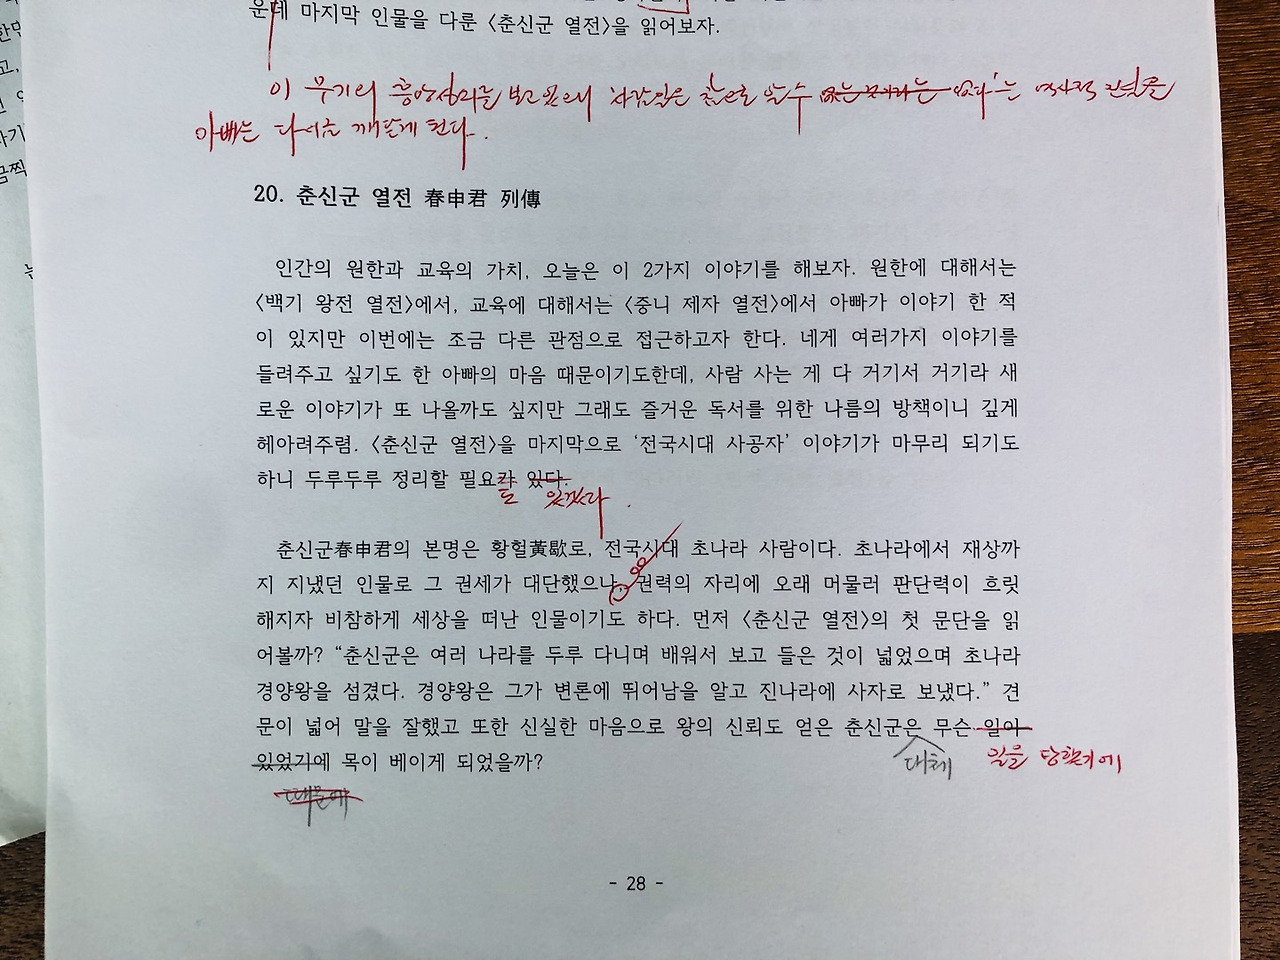 운데 마지막 인물을 다룬 〈춘신군 열전〉을 읽어보자.
이 무기의 흥망성쇠를 보고 있으니 사람일은 앞으로 알 수 없는 것이라는 없다'는 역사적 진실을
아빠는 다시금 깨닫게 된다.
20. 춘신군 열전 春申君 列傳
인간의 원한과 교육의 가치, 오늘은 이 2가지 이야기를 해보자. 원한에 대해서는
〈백기 왕전 열전〉에서, 교육에 대해서는 〈중니 제자 열전〉에서 아빠가 이야기 한 적
이 있지만 이번에는 조금 다른 관점으로 접근하고자 한다. 네게 여러가지 이야기를
들려주고 싶기도 한 아빠의 마음 때문이기도한데, 사람 사는 게 다 거기서 거기라 새
로운 이야기가 또 나올까도 싶지만 그래도 즐거운 독서를 위한 나름의 방책이니 깊게
헤아려주렴. 〈춘신군 열전〉을 마지막으로 '전국시대 사공자' 이야기가 마무리 되기도
하니 두루두루 정리할 필요가 있다.
도 있겠다.
춘신군春申君의 본명은 황헐黃歇로, 전국시대 초나라 사람이다. 초나라에서 재상까
지 지냈던 인물로 그 권세가 대단했으나, 권력의 자리에 오래 머물러 판단력이 흐릿
해지자 비참하게 세상을 떠난 인물이기도 하다. 먼저 〈춘신군 열전〉의 첫 문단을 읽
어볼까? “춘신군은 여러 나라를 두루 다니며 배워서 보고 들은 것이 넓었으며 초나라
경양왕을 섬겼다. 경양왕은 그가 변론에 뛰어남을 알고 진나라에 사자로 보냈다.” 견
문이 넓어 말을 잘했고 또한 신실한 마음으로 왕의 신뢰도 얻은 춘신군은 무슨 일이
대체 일을 당했기에
있었기에 목이 베이게 되었을까?
때문에
- 28 -